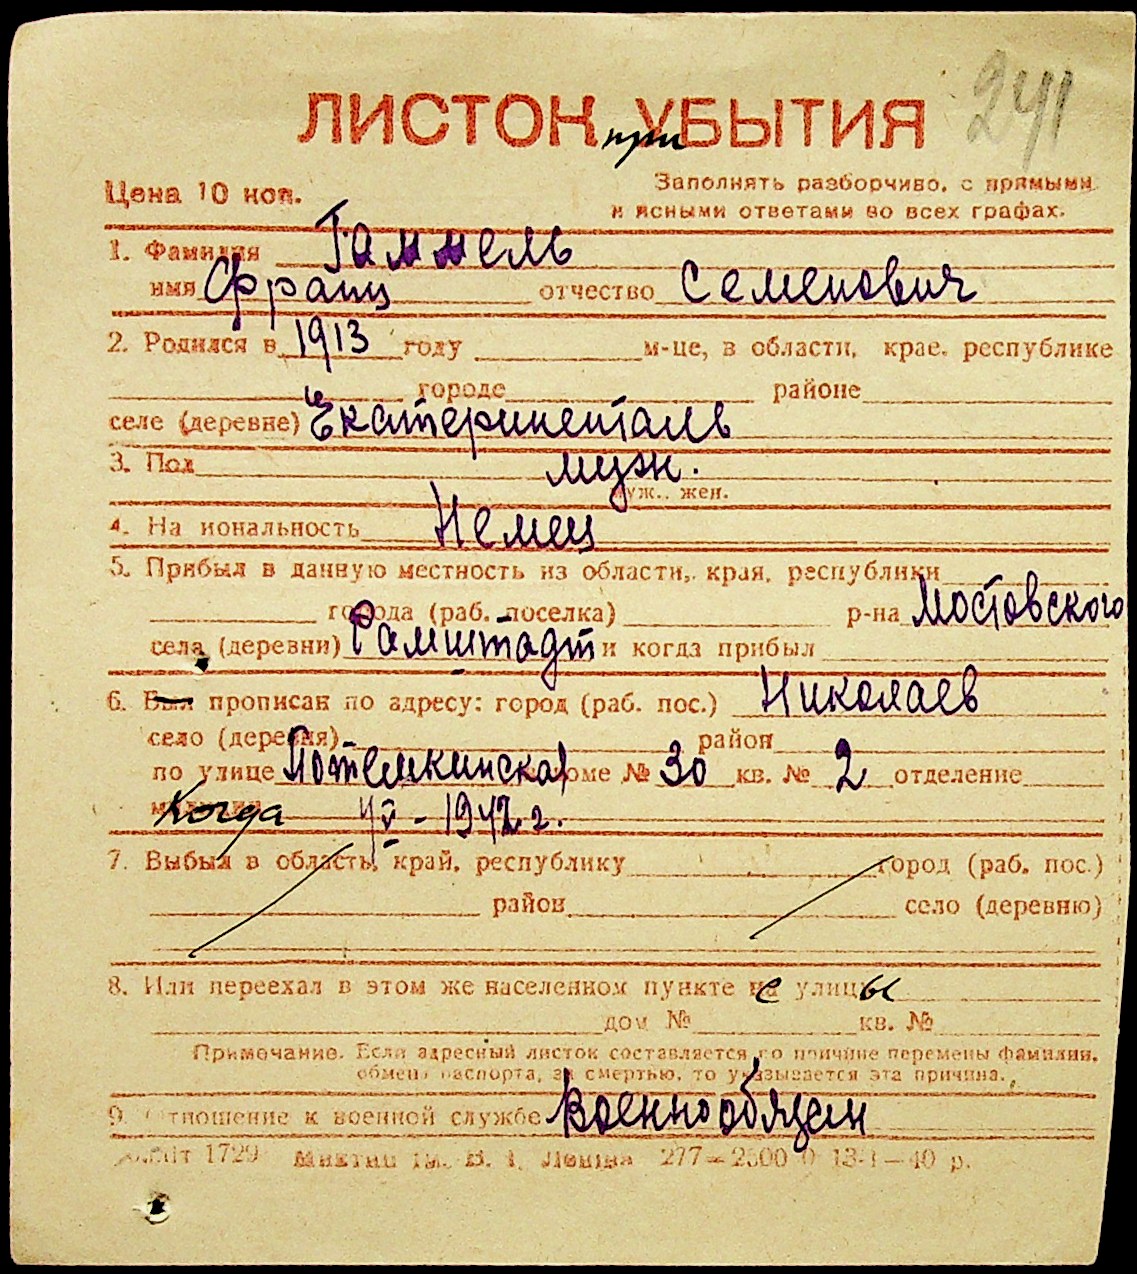 241
ЛИСТОК при УБЫТИЯ
Цена 10 коп.
Заполнять разборчиво, с прямыми
и ясными ответами во всех графах.
1. Фамилия Гаммель
имя Франц отчество Семенович
2. Родился в 1913 году м-це, в области, крае, республике
городе районе
селе (деревне) Екатериненталь
3. Пол муж.
муж., жен.
4. На иональность Немец
5. Прибыл в данную местность из области, края, республики
города (раб. поселка) р-на Мостовского
села (деревни) Рамштадт и когда прибыл
6. Был прописан по адресу: город (раб. пос.) Николаев
село (деревня) район
по улице Потемкинская доме № 30 кв. № 2 отделение
Когда 4/V - 1942 г.
7. Выбыл в область, край, республику город (раб. пос.)
район село (деревню)
8. Или переехал в этом же населенном пункте с улицы
дом № кв. №
Примечание. Если адресный листок составляется по причине перемены фамилии,
обмена паспорта, за смертью, то указывается эта причина.
9. Отношение к военной службе военнообязан
1729 В. І. Леніна 277—2500 0 13-І—40 р.